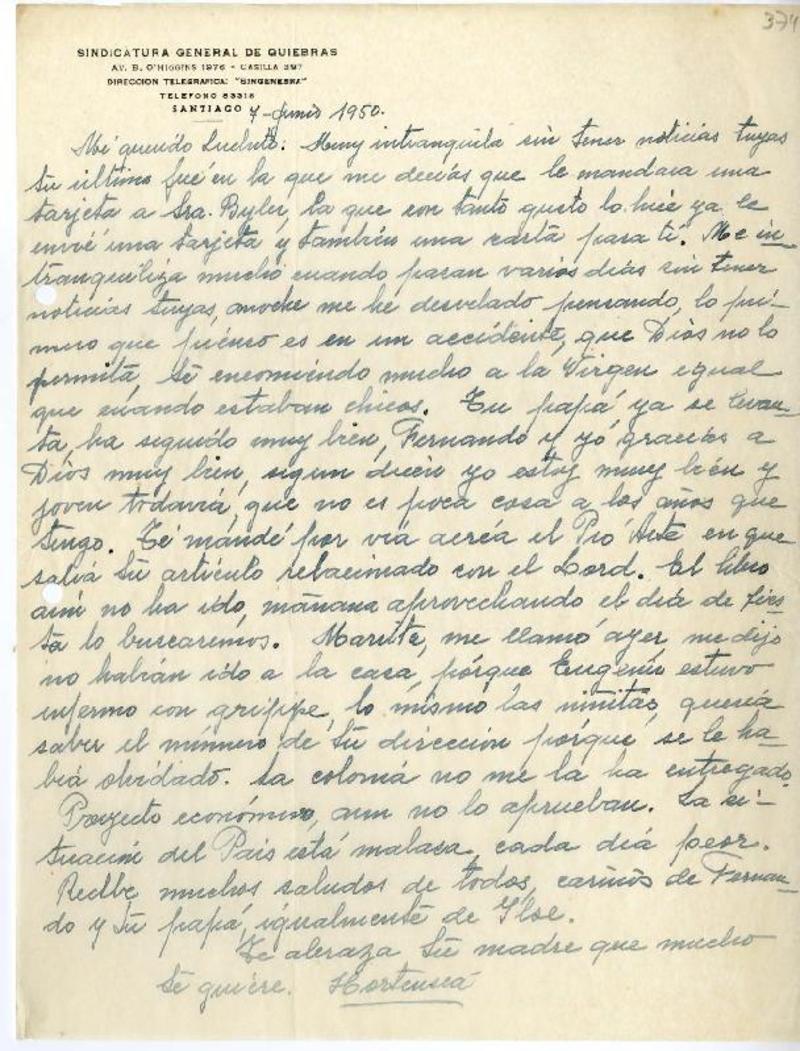 374
SINDICATURA GENERAL DE QUIEBRAS
AV. B. O'HIGGINS 1976 - CASILLA 397
DIRECCION TELEGRAFICA: "SINGENESKA"
TELEFONO 83315
SANTIAGO 7-Junio 1950.
Mi querido Luchito: Muy intranquila sin tener noticias tuyas
tu última fué en la que me decías que le mandara una
tarjeta a Sra. Byler, la que con tanto gusto lo hicé ya le
envié una tarjeta y también una carta para ti. Me in-
tranquiliza mucho cuando pasan varios dias sin tener
noticias tuyas, anoche me he desvelado pensando, lo pri-
mero que piénso es en un accidente, que Dios no lo
permita, te encomiendo mucho a la Virgen igual
que cuando estaban chicos. Tu papá ya se levan-
ta, ha seguido muy bien, Fernando y yó gracias a
Dios muy bien, segun dicen yo estoy muy bién y
joven todavía, que no es poca cosa a los años que
tengo. Té mandé por vía aeréa el Pro Arte en que
salía tu artículo relacionado con el Lord. El libro
aún no ha ido, mañana aprovechando el día de fies-
ta lo buscaremos. Maruta, me llamó ayer, me dijo
no habían ido a la casa, pórque Eugenio estuvo
enfermo con grippe, lo mismo las niñitas, quería
saber el número de tu dirección pórque se le ha-
bía olvidado. La colonia no me la ha entregado.
Proyecto económico, aun no lo aprueban. La si-
tuación del Pais está malasa, cada día peor.
Recibe muchos saludos de todos, cariños de Fernan-
do y tu papá, igualmente de Ilse.
Te abraza tu madre que mucho
te quiére. Hortensia